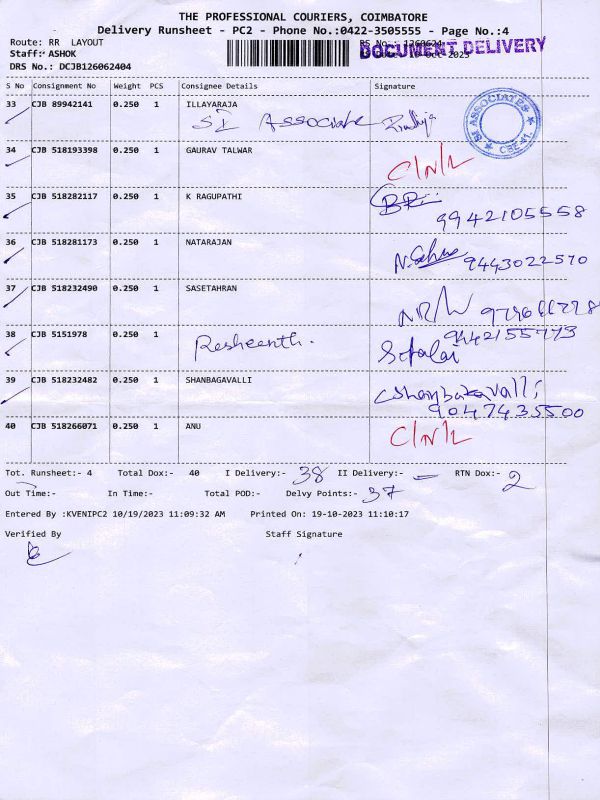 THE PROFESSIONAL COURIERS, COIMBATORE
Delivery Runsheet - PC2 - Phone No.:0422-3505555 - Page No.:4
Route: RR LAYOUT
DOCUMENT DELIVERY
Staff: ASHOK
DRS No.: DCJB126062404
S No Consignment No Weight PCS Consignee Details Signature
33 CJB 89942141 0.250 1 ILLAYARAJA
SI Associate
SI ASSOCIATES CBE-41.
34 CJB 518193398 0.250 1 GAURAV TALWAR
C/N/L
35 CJB 518282117 0.250 1 K RAGUPATHI
9942105558
36 CJB 518281173 0.250 1 NATARAJAN
9443022570
37 CJB 518232490 0.250 1 SASETAHRAN
NR/W
9442155773
38 CJB 5151978 0.250 1
Resheenth.
39 CJB 518232482 0.250 1 SHANBAGAVALLI
Shanbagavalli
9047435500
40 CJB 518266071 0.250 1 ANU
C/N/L
Tot. Runsheet:- 4 Total Dox:- 40 I Delivery:- 38 II Delivery:- - RTN Dox:- 2
Out Time:- In Time:- Total POD:- Delvy Points:- 37
Entered By :KVENIPC2 10/19/2023 11:09:32 AM Printed On: 19-10-2023 11:10:17
Verified By Staff Signature